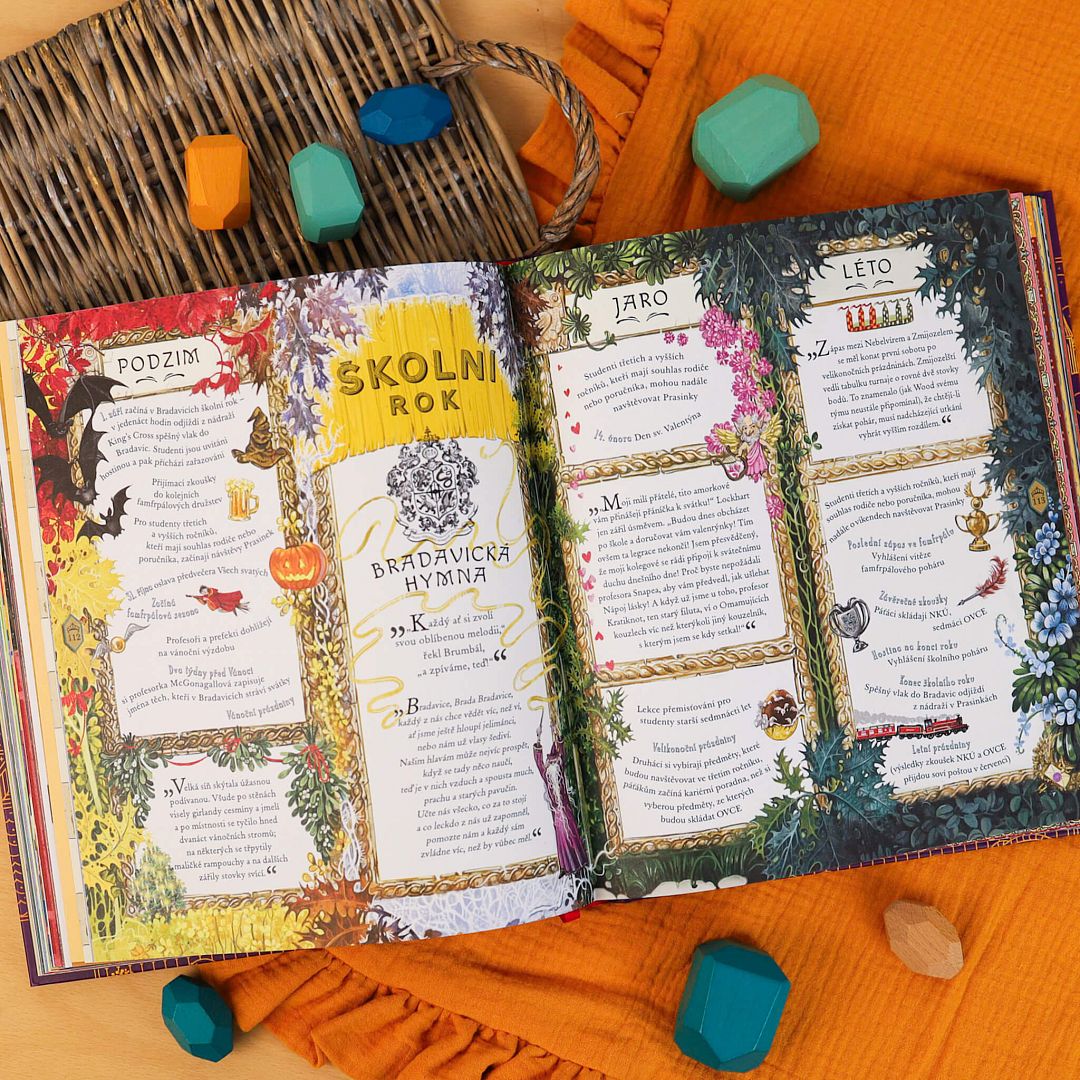 PODZIM
1. září začíná v Bradavicích školní rok –
v jedenáct hodin odjíždí z nádraží
King's Cross spěšný vlak do
Bradavic. Studenti jsou uvítáni
hostinou a pak přichází zařazování
Přijímací zkoušky
do kolejních
famfrpálových družstev
Pro studenty třetích
a vyšších ročníků,
kteří mají souhlas rodiče nebo
poručníka, začínají návštěvy Prasinek
31. říjno oslava předvečera Všech svatých
Začíná
famfrpálová sezona
Profesoři a prefekti dohlížejí
na vánoční výzdobu
Dva týdny před Vánoci
si profesorka McGonagallová zapisuje
jména těch, kteří v Bradavicích stráví svátky
Vánoční prázdniny
„Velká síň skýtala úžasnou
podívanou. Všude po stěnách
visely girlandy cesmíny a jmelí
a po místnosti se tyčilo hned
dvanáct vánočních stromů;
na některých se třpytily
maličké rampouchy a na dalších
zářily stovky svící.“
112
ŠKOLNÍ
ROK
BRADAVICKÁ
HYMNA
„Každý ať si zvolí
svou oblíbenou melodii,“
řekl Brumbál,
„a zpíváme, teď!“
„Bradavice, Brada Bradavice,
každý z nás chce vědět víc, než ví,
ať jsme ještě hloupí jelimánci,
nebo nám už vlasy šediví.
Našim hlavám může nejvíc prospět,
když se tady něco naučí,
teď je v nich vzduch a spousta much,
prachu a starých pavučin.
Učte nás všecko, co za to stojí
a co leckdo z nás už zapomněl,
pomozte nám a každý sám
zvládne víc, než by vůbec měl.“
JARO
Studenti třetích a vyšších
ročníků, kteří mají souhlas rodiče
nebo poručníka, mohou nadále
navštěvovat Prasinky
14. února Den sv. Valentýna
„Moji milí přátelé, tito amorkové
vám přinášejí přáníčka k svátku!“ Lockhart
jen zářil úsměvem. „Budou dnes obcházet
po škole a doručovat vám valentýnky! Tím
ovšem ta legrace nekončí! Jsem přesvědčený,
že moji kolegové se rádi připojí k svátečnímu
duchu dnešního dne! Proč byste nepožádali
profesora Snapea, aby vám předvedl, jak ušlehat
Nápoj lásky! A když už jsme u toho, profesor
Kratiknot, ten starý filuta, ví o Omamujících
kouzlech víc než kterýkoli jiný kouzelník,
s kterým jsem se kdy setkal!“
Lekce přemisťování pro
studenty starší sedmnácti let
Velikonoční prázdniny
Druháci si vybírají předměty, které
budou navštěvovat ve třetím ročníku,
páťákům začíná kariérní poradna, než si
vyberou předměty, ze kterých
budou skládat OVCE
LÉTO
„Zápas mezi Nebelvírem a Zmijozelem
se měl konat první sobotu po
velikonočních prázdninách. Zmijozelští
vedli tabulku turnaje o rovné dvě stovky
bodů. To znamenalo (jak Wood svému
týmu neustále připomínal), že chtějí-li
získat pohár, musí nadcházející utkání
vyhrát vyšším rozdílem.“
Studenti třetích a vyšších ročníků, kteří mají
souhlas rodiče nebo poručníka, mohou
nadále o víkendech navštěvovat Prasinky
Poslední zápas ve famfrpálu
Vyhlášení vítěze
famfrpálového poháru
Závěrečné zkoušky
Páťáci skládají NKÚ,
sedmáci OVCE
Hostina na konci roku
Vyhlášení školního poháru
Konec školního roku
Spěšný vlak do Bradavic odjíždí
z nádraží v Prasinkách
Letní prázdniny
(výsledky zkoušek NKÚ a OVCE
přijdou soví poštou v červenci)
113